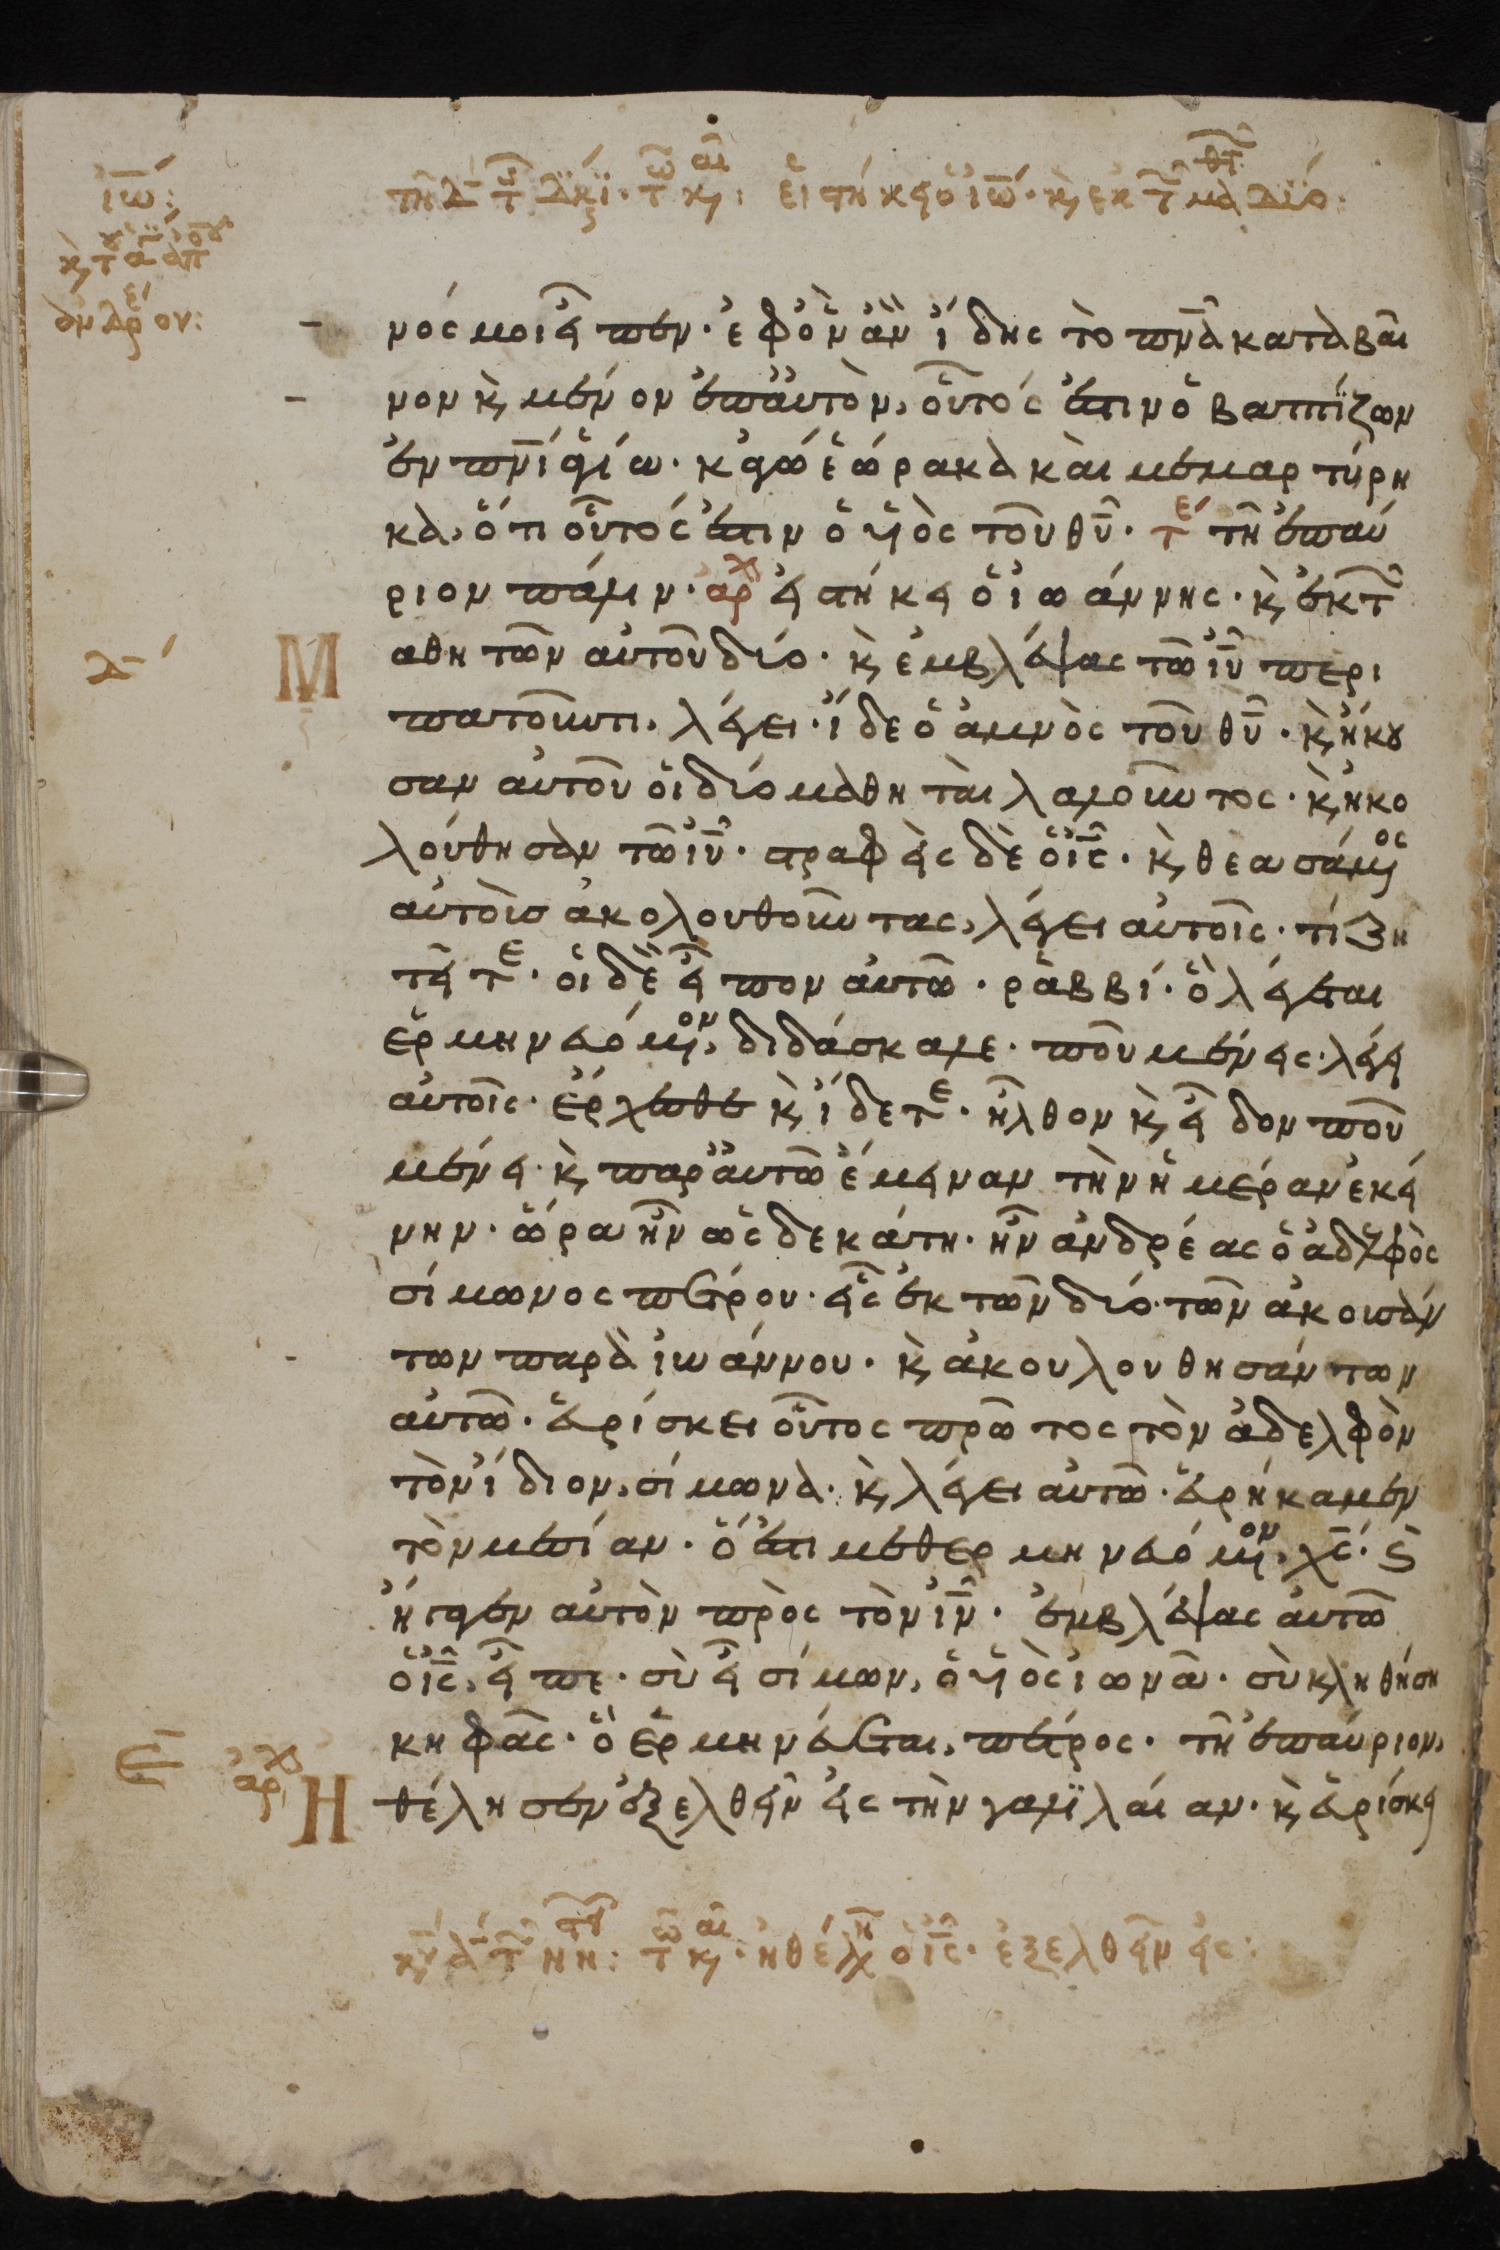 ἰω:
τῆ δ τ διακι. τω και: εἱστήκει ὁ ἰω. κ, ἐκ τ μαθτ διό:
κ, του ἁγίου ἀπ
ἀνδρέου:
νος μοι εἶπεν· ἐφ' ὃν ἂν ἴδης τὸ πνᾶ καταβαῖ
νον κ, μένον ἐπ' αὐτὸν, οὗτός ἐστιν ὁ βαπτίζων
ἐν πνι ἁγίω· κἀγώ ἑώρακα καὶ μεμαρτύρη
κα, ὅτι οὗτός ἐστιν ὁ υἱὸς τοῦ θῦ· τε τῆ ἐπαύ
ριον πάλιν· αρχ εἱστήκει ὁ ἰωάννης· κ, ἐκ τῶν μ
αθητῶν αὐτοῦ δύο· κ, ἐμβλέψας τῶ ἰῦ περι
πατοῦντι, λέγει· ἴδε ὁ ἀμνὸς τοῦ θῦ· κ, ἤκου
σαν αὐτοῦ οἱ δύο μαθηταὶ λαλοῦντος· κ, ἠκο
λούθησαν τῶ ἰῦ· στραφεὶς δὲ ὁ ἰς· κ, θεασάμενος
αὐτοὺς ἀκολουθοῦντας, λέγει αὐτοῖς· τί ζη
τεῖτε· οἱ δὲ εἶπον αὐτῶ· ῥαββί· ὃ λέγεται
ἑρμηνευόμενον, διδάσκαλε· ποῦ μένεις· λέγει
αὐτοῖς· ἔρχεσθε κ, ἴδετε· ἦλθον κ, εἶδον ποῦ
μένει· κ, παρ' αὐτῶ ἔμειναν τὴν ἡμέραν ἐκεί
νην· ὥρα ἦν ὡς δεκάτη· ἦν ἀνδρέας ὁ ἀδελφὸς
σίμωνος πέτρου· εἷς ἐκ τῶν δύο τῶν ἀκουσάν
των παρὰ ἰωάννου· κ, ἀκουλουθησάντων
αὐτῶ· εὑρίσκει οὗτος πρῶτος τὸν ἀδελφὸν
τὸν ἴδιον, σίμωνα· κ, λέγει αὐτῶ· εὑρήκαμεν
τὸν μεσίαν· ὅ ἐστι μεθερμηνευόμενον, χς· κ,
ἤγαγεν αὐτὸν πρὸς τὸν ἰν· ἐμβλέψας αὐτῶ
ὁ ἰς, εἶπε· σὺ εἶ σίμων, ὁ υἱὸς ἰωνᾶ· σὺ κληθήση
κηφᾶς· ὃ ἑρμηνεύεται, πέτρος· τῆ ἐπαύριον,
Ε αρχ Ηθέλησεν ἐξελθεῖν εἰς τὴν γαλιλαίαν· κ, εὑρίσκει
κυ α τ νη: τω και· ἠθέλη ὁ ἰς· ἐξελθεῖν εἰς: